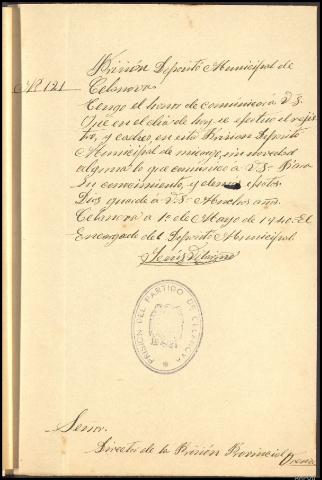 Prisión Deposito Municipal de
Nº 121 Celanova.
Tengo el honor de comunicar a V.S.
Que en el dia de hoy, se efectuo el regis-
tro, y cacheo, en esta Prision Deposito
Municipal de mi cargo, sin novedad
alguna lo que comunico a V.S. Para
su conocimiento, y demas efectos.
Dios guarde a V.S. Muchos años.
Celanova a 1º de Mayo de 1940. El
Encargado del Deposito Municipal
Jesús
PRISION DEL PARTIDO DE CELANOVA
Senor.
Director de la Prisión Provincial Orense